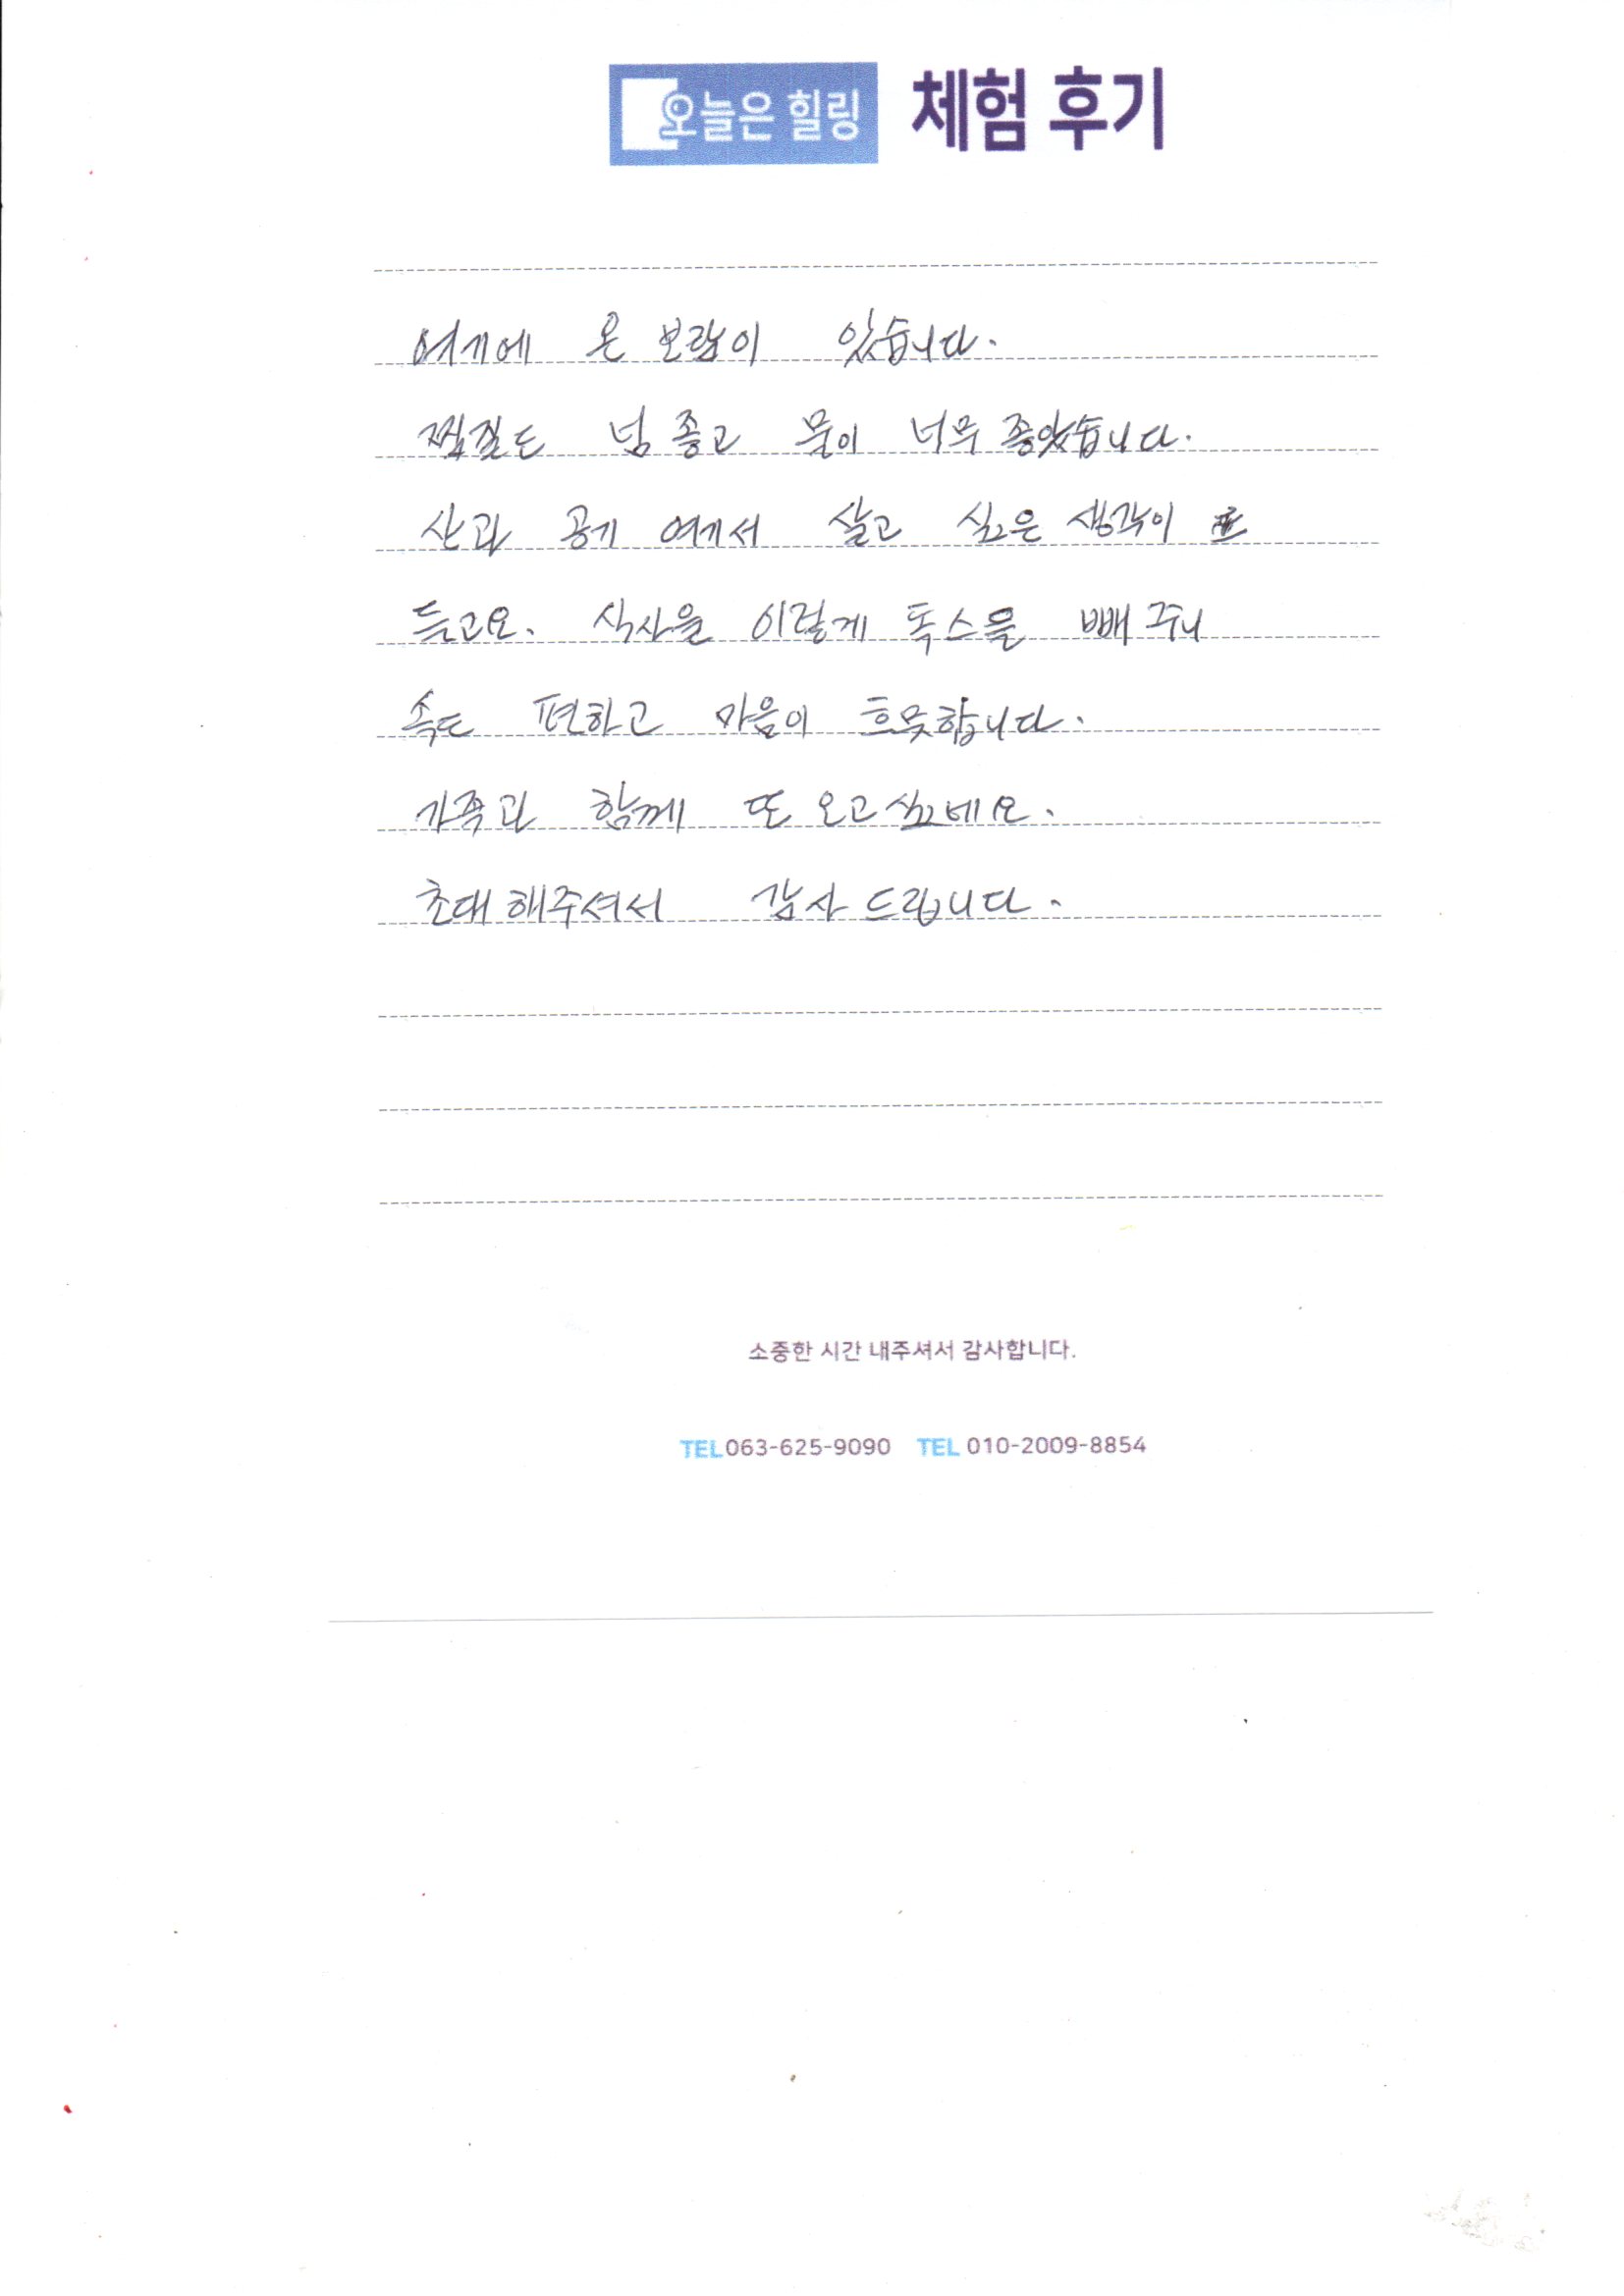 오늘은 힐링 체험 후기
여기에 온 보람이 있습니다.
찜질도 넘 좋고 물이 너무 좋았습니다.
산과 공기 여기서 살고 싶은 생각이
듣고요. 식사을 이렇게 독스를 빼 주니
속도 편하고 마음이 흐뭇합니다.
가족과 함께 또 오고싶네요.
초대해주셔서 감사드립니다.
소중한 시간 내주셔서 감사합니다.
TEL 063-625-9090 TEL 010-2009-8854